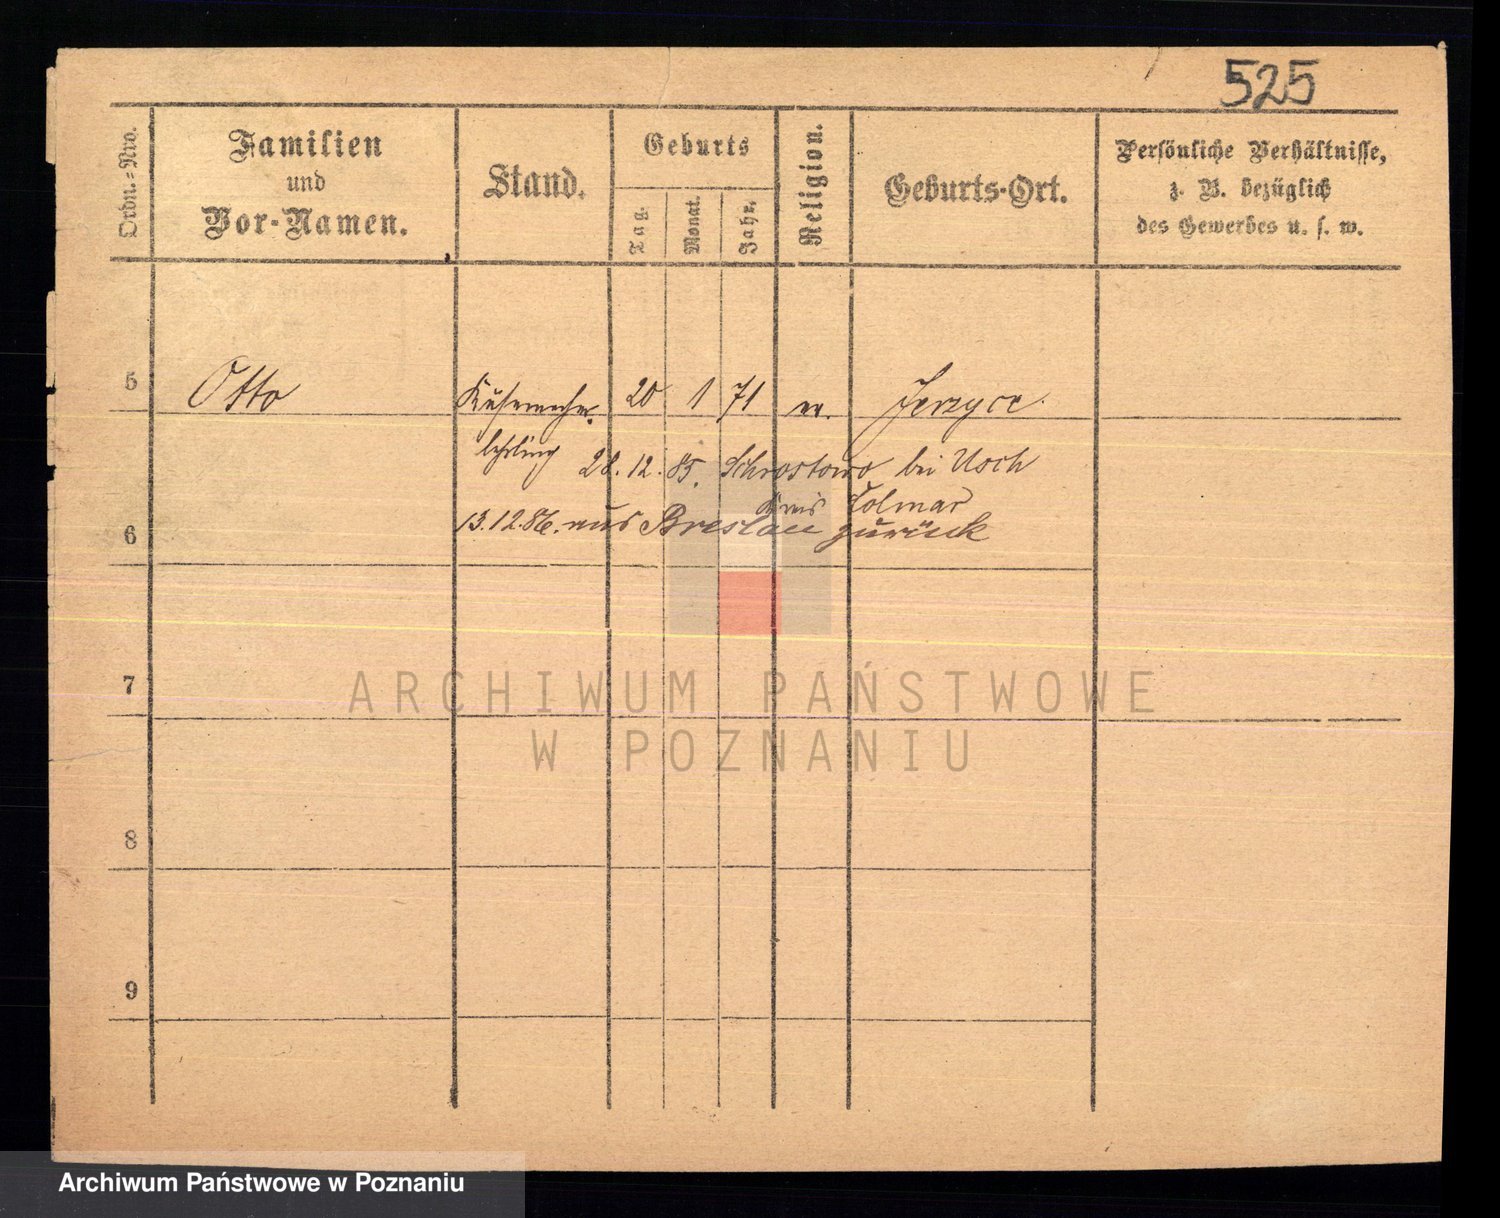 525
Ordn.=Nro.
Familien
und
Vor-Namen.
Stand.
Geburts
Tag.
Monat.
Jahr.
Religion.
Geburts-Ort.
Persönliche Verhältnisse,
z. B. bezüglich
des Gewerbes u. s. w.
5 Otto 20 1 71 ev. Jerzyce
lehrling 28. 12. 85. Schrostowo bei Usch
Kreis Colmar
13.12.86. aus Breslau zurück
6
7
8
9
ARCHIWUM PAŃSTWOWE
W POZNANIU
Archiwum Państwowe w Poznaniu